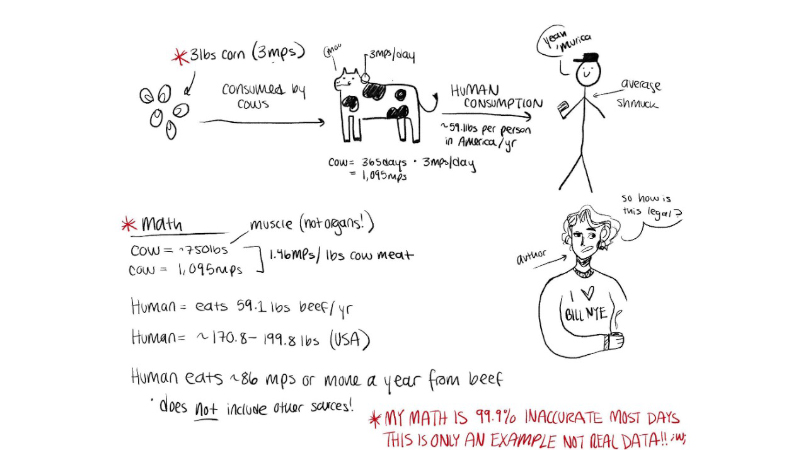 *3lbs corn (3mps)
consumed by
cows
moo
3mps/day
cow= 365days · 3mps/day
= 1,095mps
HUMAN
CONSUMPTION
~59.1lbs per person
in America/yr
yeah
'murica
average
shmuck
*math
muscle (not organs!)
cow= ~750lbs
cow= 1,095mps
1.46mps/lbs cow meat
Human= eats 59.1 lbs beef/yr
Human= ~170.8-199.8lbs (USA)
Human eats ~86 mps or more a year from beef
· does not include other sources!
so how is
this legal?
author
I ♡
BILL NYE
*MY MATH IS 99.9% INACCURATE MOST DAYS
THIS IS ONLY AN EXAMPLE NOT REAL DATA!! ;w;